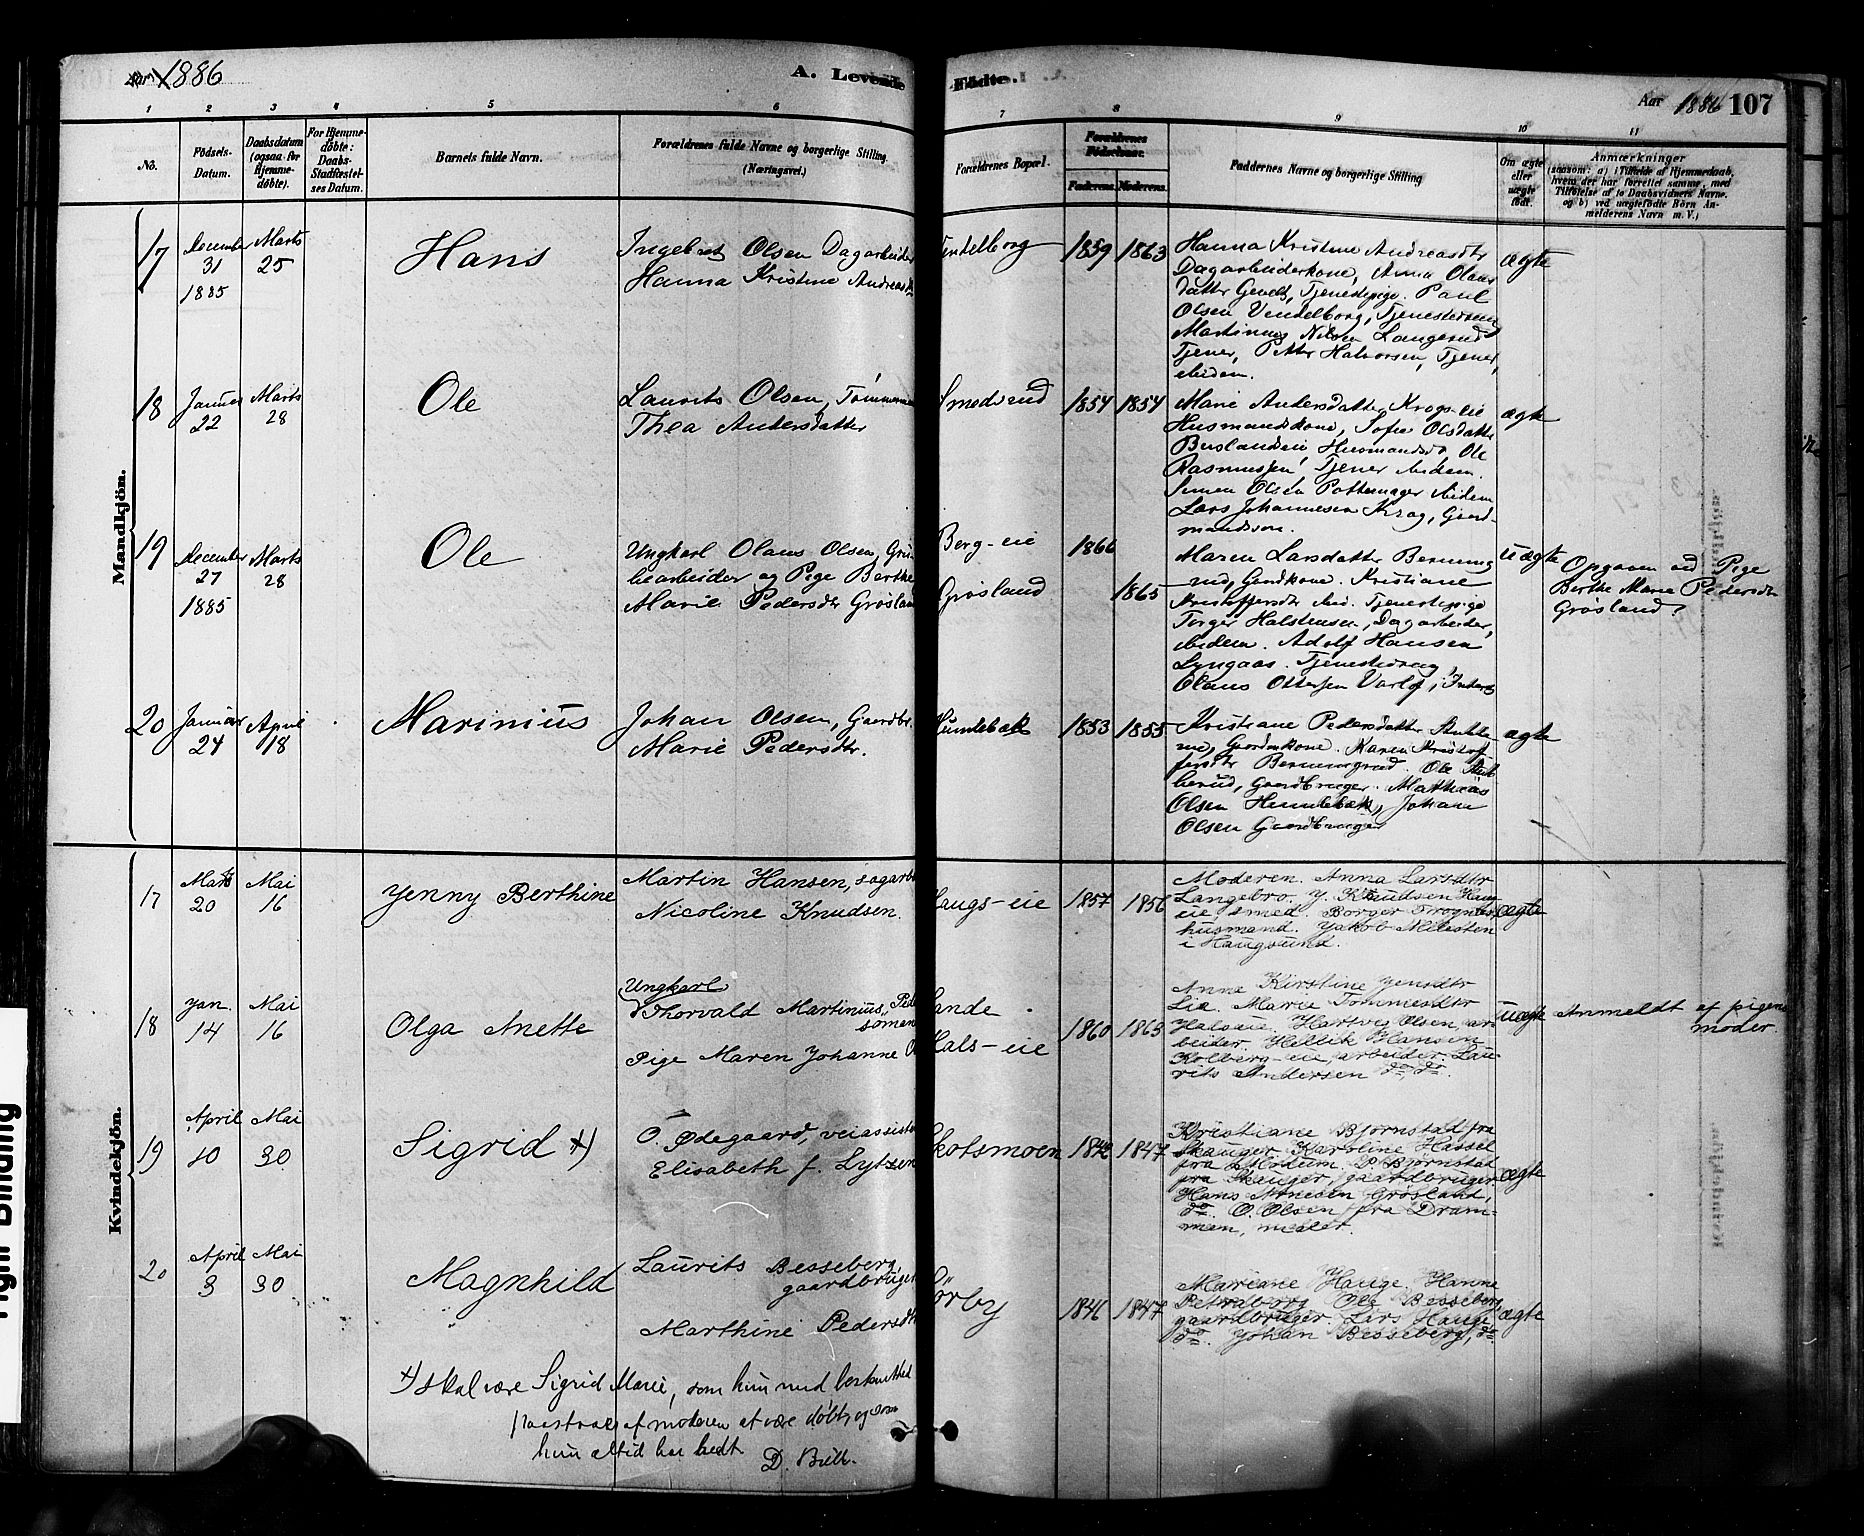 Aar 1886
A. Levende Födte.
Aar 1886 107
1 2 3 4 5 6 7 8 9 10 11
No.
Födsels-Datum.
Daabsdatum (ogsaa for Hjemmedöbte).
For Hjemmedöbte: Daabs-Stadfæstelses Datum.
Barnets fulde Navn.
Forældrenes fulde Navne og borgerlige Stilling (Næringsvei.)
Forældrenes Bopæl.
Forældrenes Födselsaar.
Faderens. Moderens.
Faddernes Navne og borgerlige Stilling
Om ægte eller uægte födt.
Anmærkninger
(saasom: a) i Tilfælde af Hjemmedaab, hvem der har forrettet samme, med Tilföielse af to Daabsvidners Navne. og b) ved uægtefödte Börn Anmelderens Navn m. V.)
Mandkjön.
17
December 31 1885
Marts 25
Hans
Ingebret Olsen Dagarbeider
Hanna Kristine Andreasd
Vendelborg
1859 1863
Hanna Kristine Andreasdtr
Dagarbeiderkone, Anna Olaus
datter Gevelt, Tjenestepige. Paul
Olsen Vendelborg, Tjenestedreng
Martinus Nilsen Langerud
Tjener, Petter Halvorsen, Tjener,
ibidem.
ægte
18
Januar 22
Marts 28
Ole
Laurits Olsen, Tömmerm
Thea Andersdatter
Smedsrud
1854 1854
Marie Andersdatter Krogs-eie
Husmandskone, Sofie Olsdatter
Buslandseie Husmandsd. Ole
Rasmussen, Tjener ibidem
Simen Olsen Pottemager ibidem
Lars Johannesen Krog, Gaard-
mandssön.
ægte
19
December 27 1885
Marts 28
Ole
Ungkarl Olaus Olsen, Gru-
bearbeider og Pige Berthe
Marie Pedersdtr Grösland
Berg-eie
Grösland
1866
1865
Maren Larsdatter Berning
rud, Gmdkone. Kristiane
Kristoffersdtr ibid. Tjenestepige
Torger Halstensen, Dagarbeider,
ibidem. Adolf Hansen
Lyngaas. Tjenestedreng,
Olaus Ottersen Varlo, Inders
uægte
Opgaven ad Pige
Berthe Marie Pedersdtr
Grösland.
20
Januar 24
April 18
Marinius
Johan Olsen, Gaardbr.
Marie Pedersdtr.
Hundebæk
1853 1855
Kristiane Pedersdatter Stubbe
rud, Gaardmkone. Karen Kristof
fersdtr Berningrud. Ole Stub
berud, Gaardbruger. Mathias
Olsen Hundebæk, Johan
Olsen Gaardbruger
ægte
Kvindekjön.
17
Marts 20
Mai 16
Yenny Berthine
Martin Hansen, sagarb
Nicoline Knudsen.
Haugs-eie
1857 1856
Moderen. Anna Larsdtr
Langebro. Y. Knudsen Haug
eie, smed. Borger Trogneb
husmand. Yakob Milesten
i Haugsund.
ægte
18
Jan. 14
Mai 16
Olga Anette
Ungkarl
Thorvald Martinius Ped
Pige Maren Yohanne
Sande
Hals-eie
1860 1865
Anne Kirstine Yensdtr
Lie. Marie Tommesdtr
Halseie. Hartvig Olsen, ar-
beider. Hellik Hansen
Kolberg-eie, arbeider. Lau-
rits Andersen do, do.
uægte
Anmeldt af pigens
moder.
19
April 10
Mai 30
Sigrid x)
O. Ödegaard, veiassist
Elisabeth f. Lytzen
Skotsmoen
1842 1847
Kristiane Bjørnstad fra
Skauger Karoline Hassel
fra Modum. P. Bjørnstad
fra Skauger, gaardbruger.
Hans Arnesen Grösland,
do. O. Olsen fra Dram-
men, maler.
ægte
20
April 3
Mai 30
Magnhild
Laurits Besseberg,
gaardbruger
Marthine Pedersdtr
Örby
1846 1847
Mariane Hauge. Hanne
Petersborg. Ole Besseberg,
gaardbruger. Lars Hauge,
do. Yohan Besseberg, do
ægte
x) skal være Sigrid Marie, som hun med bestemthed
paastaaes af moderen at være döbt, og som
hun altid har hedt
D. Bull.
Right Binding